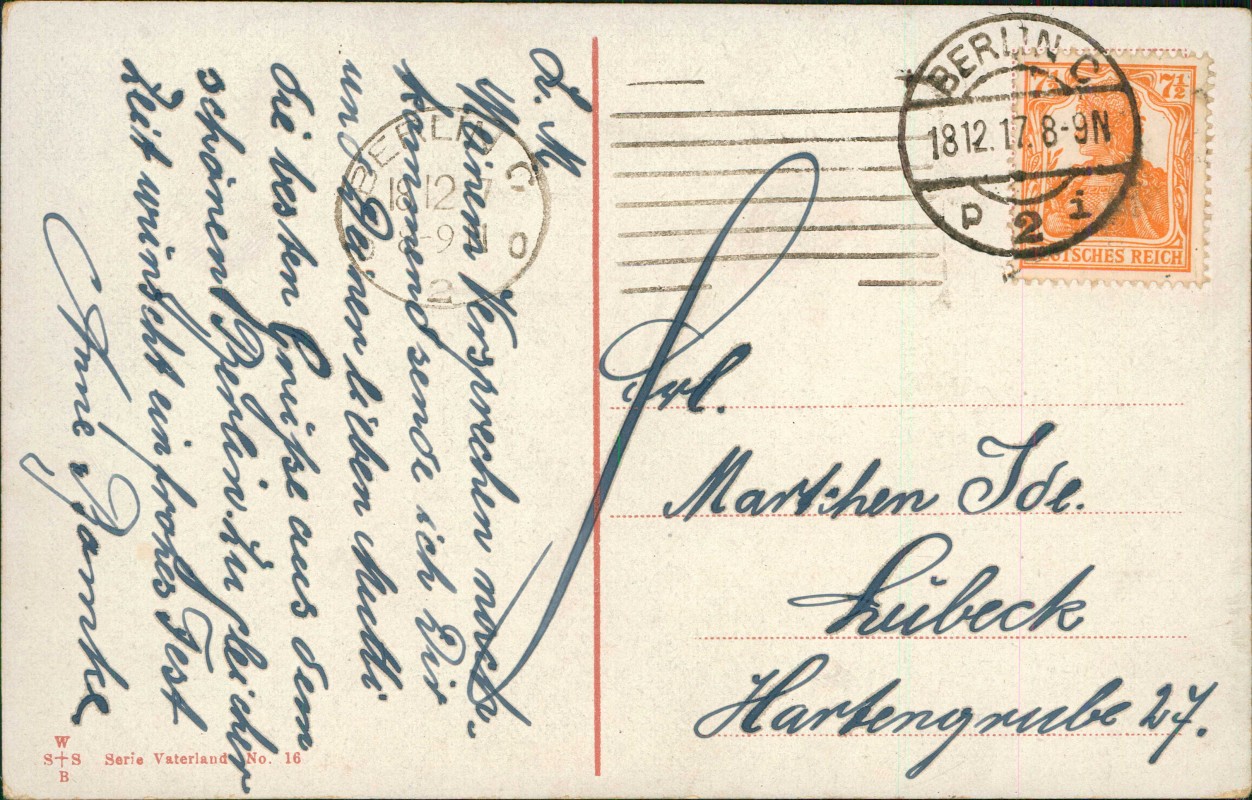 L. M
Meinem Versprechen nach-
kommend sende ich Dir
und Deinen lieben Mutti
die besten Grüße aus dem
schönen Berlin. Zu gleicher
Zeit wünscht ein frohes Fest
Änne
BERLIN C
18 12 17
8-9 N
2
BERLIN C
18 12. 17. 8-9N
p 2 i
7½ 7½
DEUTSCHES REICH
Frl.
Marichen Ide.
Lübeck
Hartengrube 27.
W
S+S
B
Serie Vaterland No. 16